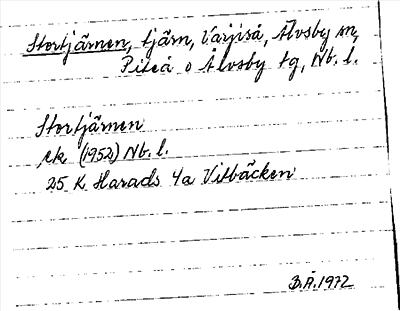 Stortjärnen, tjärn, Varjiså, Älvsby sn,
Piteå o Älvsby tg, Nb. l.
Stortjärnen
ek (1952) Nb. l.
25 K Harads 4a Vitbäcken
B.Ä. 1972